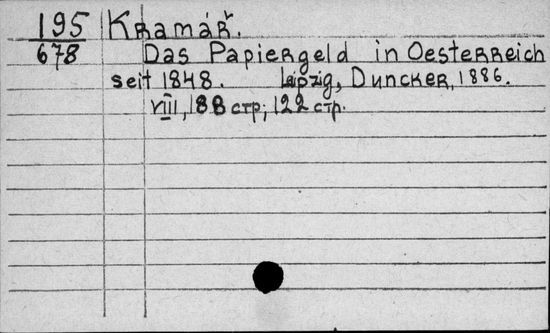 195 Kramář.
678 Das Papiergeld in Oesterreich
seit 1848. Leipzig, Duncker, 1886.
VIII, 188 стр; 122 стр.